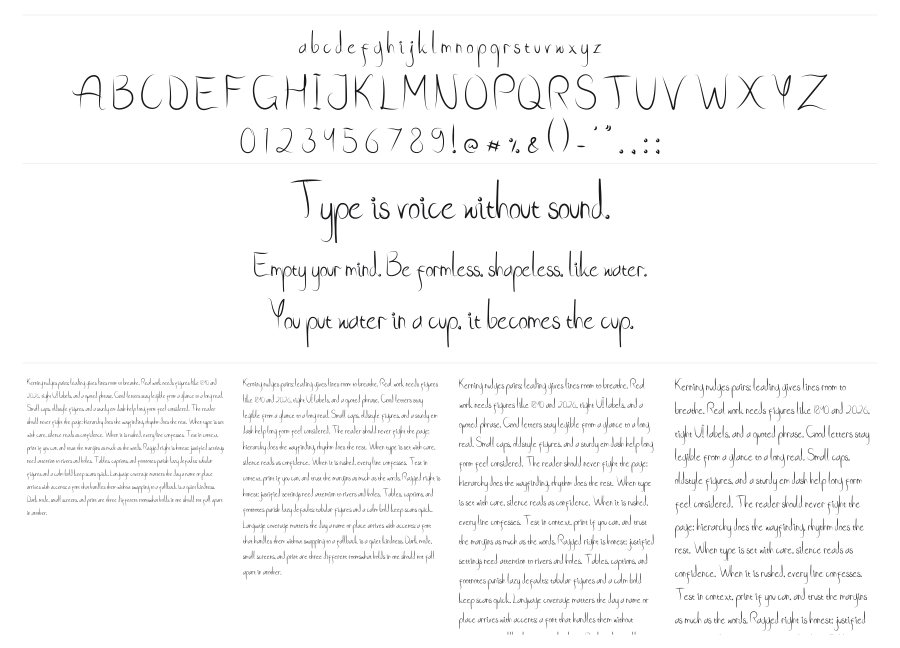 abcdefghijklmnopqrstuvwxyz
ABCDEFGHIJKLMNOPQRSTUVWXYZ
0123456789!@#%&()-'".,;:
Type is voice without sound.
Empty your mind. Be formless, shapeless, like water.
You put water in a cup, it becomes the cup.
Kerning nudges pairs; leading gives lines room to breathe. Real work needs figures like 1890 and
2026, right UI labels, and a quoted phrase. Good letters stay legible from a glance to a long read.
Small caps, oldstyle figures, and a sturdy em dash help long form feel considered. The reader
should never fight the page: hierarchy does the wayfinding, rhythm does the rest. When type is set
with care, silence reads as confidence. When it is rushed, every line confesses. Test in context,
print if you can, and trust the margins as much as the words. Ragged right is honest; justified settings
need attention to rivers and holes. Tables, captions, and footnotes punish lazy defaults: tabular
figures and a calm bold keep scans quick. Language coverage matters the day a name or place
arrives with accents; a font that handles them without swapping to a fallback is a quiet kindness.
Dark mode, small screens, and print are three different rooms
that bolds in one should not fall apart
in another.
Kerning nudges pairs; leading gives lines room to breathe. Real work needs figures
like 1890 and 2026, right UI labels, and a quoted phrase. Good letters stay
legible from a glance to a long read. Small caps, oldstyle figures, and a sturdy em
dash help long form feel considered. The reader should never fight the page:
hierarchy does the wayfinding, rhythm does the rest. When type is set with care,
silence reads as confidence. When it is rushed, every line confesses. Test in
context, print if you can, and trust the margins as much as the words. Ragged right is
honest; justified settings need attention to rivers and holes. Tables, captions, and
footnotes punish lazy defaults: tabular figures and a calm bold keep scans quick.
Language coverage matters the day a name or place arrives with accents; a font
that handles them without swapping to a fallback is a quiet kindness. Dark mode,
small screens, and print are three different rooms that bolds in one should not fall
apart in another.
Kerning nudges pairs; leading gives lines room to breathe. Real
work needs figures like 1890 and 2026, right UI labels, and a
quoted phrase. Good letters stay legible from a glance to a long
read. Small caps, oldstyle figures, and a sturdy em dash help long
form feel considered. The reader should never fight the page:
hierarchy does the wayfinding, rhythm does the rest. When type
is set with care, silence reads as confidence. When it is rushed,
every line confesses. Test in context, print if you can, and trust
the margins as much as the words. Ragged right is honest; justified
settings need attention to rivers and holes. Tables, captions, and
footnotes punish lazy defaults: tabular figures and a calm bold
keep scans quick. Language coverage matters the day a name or
place arrives with accents; a font that handles them without
Kerning nudges pairs; leading gives lines room to
breathe. Real work needs figures like 1890 and 2026,
right UI labels, and a quoted phrase. Good letters stay
legible from a glance to a long read. Small caps,
oldstyle figures, and a sturdy em dash help long form
feel considered. The reader should never fight the
page: hierarchy does the wayfinding, rhythm does the
rest. When type is set with care, silence reads as
confidence. When it is rushed, every line confesses.
Test in context, print if you can, and trust the margins
as much as the words. Ragged right is honest; justified